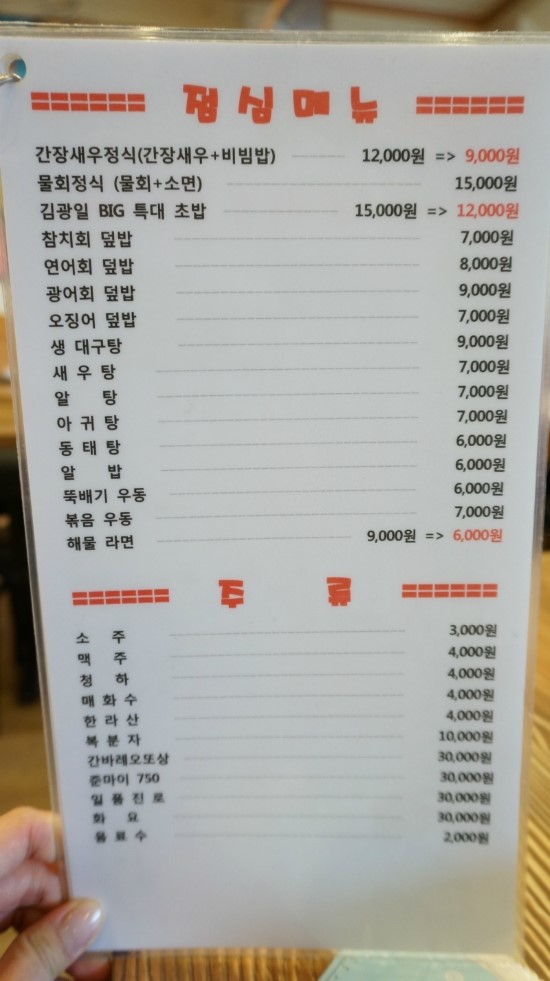 점심메뉴
간장새우정식(간장새우+비빔밥) 12,000원 => 9,000원
물회정식 (물회+소면) 15,000원
김광일 BIG 특대 초밥 15,000원 => 12,000원
참치회 덮밥 7,000원
연어회 덮밥 8,000원
광어회 덮밥 9,000원
오징어 덮밥 7,000원
생 대구탕 9,000원
새 우 탕 7,000원
알 탕 7,000원
아 귀 탕 7,000원
동 태 탕 6,000원
알 밥 6,000원
뚝배기 우동 6,000원
볶음 우동 7,000원
해물 라면 9,000원 => 6,000원
주 류
소 주 3,000원
맥 주 4,000원
청 하 4,000원
매 화 수 4,000원
한 라 산 4,000원
복 분 자 10,000원
간바레오또상 30,000원
준마이 750 30,000원
일 품 진 로 30,000원
화 요 30,000원
음 료 수 2,000원